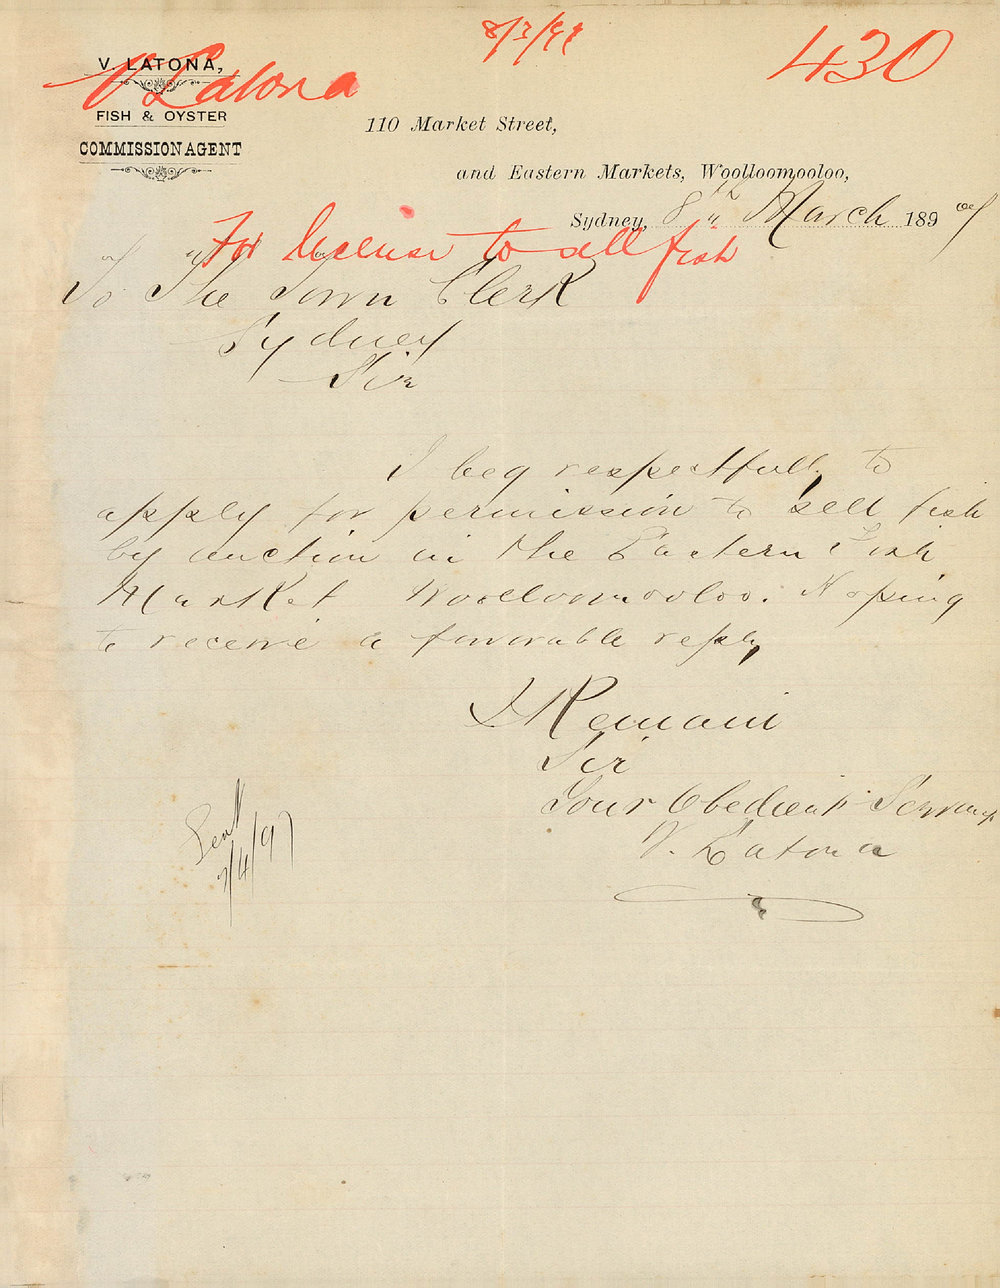 8/3/97
430
V. LATONA,
V Latona
FISH & OYSTER
COMMISSION AGENT
110 Market Street,
and Eastern Markets, Woolloomooloo,
Sydney, 8th March 1897
For license to sell fish
To The Town Clerk
Sydney
Sir
I beg respectfully to
apply for permission to sell fish
by auction in the Eastern Fish
Market Woolloomooloo. Hoping
to receive a favorable reply
I Remain
Sir
Your Obedient Servant
V. Latona
Sent
7/4/97